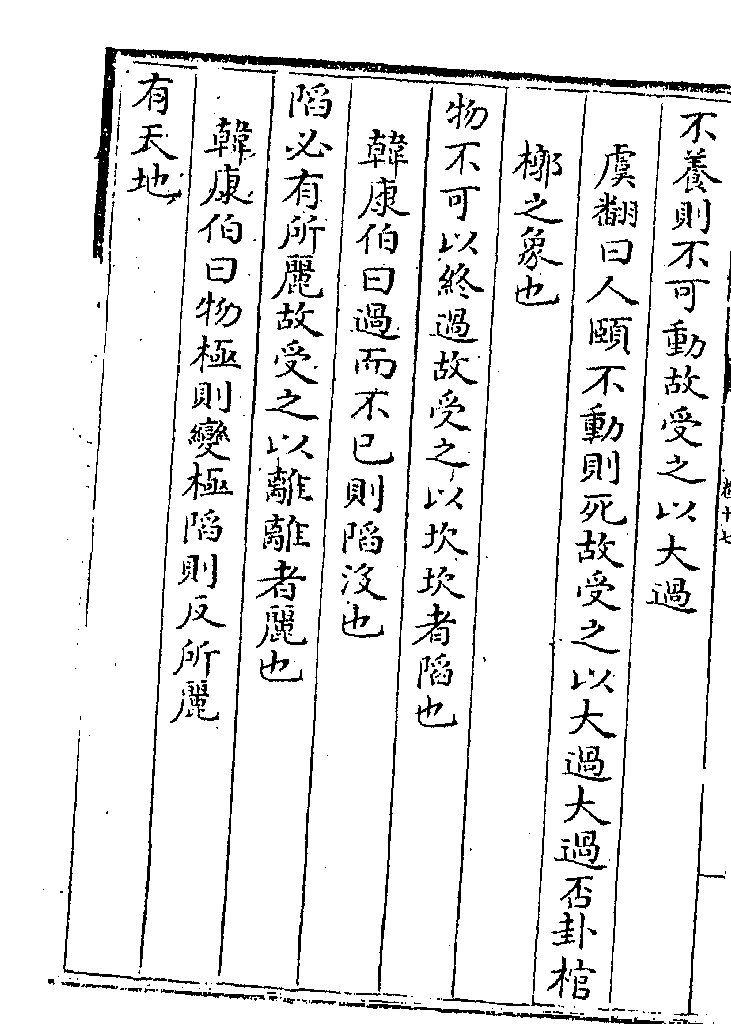 不養則不可動故受之以大過
虞翻曰人頤不動則死故受之以大過大過否卦棺
槨之象也
物不可以終過故受之以坎坎者陷也
韓康伯曰過而不已則陷沒也
陷必有所麗故受之以離離者麗也
韓康伯曰物極則變極陷則反所麗
有天地
卷十七